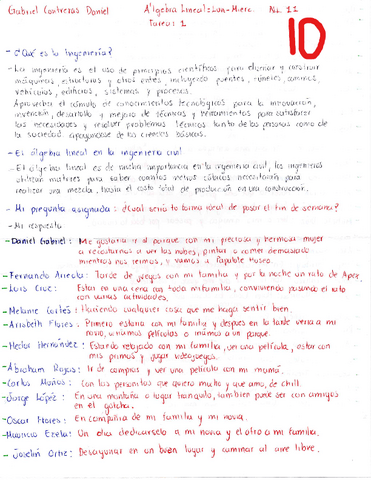 Gabriel Contreras Daniel Álgebra Lineal: Lun-Mierc. NL 11
Tarea: 1
10
- ¿Qué es la ingeniería?
- La ingeniería es el uso de principios científicos para diseñar y construir
máquinas, estructuras y otros entes, incluyendo puentes, túneles, caminos,
vehículos, edificios, sistemas y procesos.
Aprovecha el cúmulo de conocimientos tecnológicos para la innovación,
invención, desarrollo y mejora de técnicas y herramientas para satisfacer
las necesidades y resolver problemas técnicos tanto de las personas como de
la sociedad. apoyandose de las ciencias básicas.
- El álgebra lineal en la ingeniería civil
- El álgebra lineal es de mucha importancia en la ingenieria civil, los ingenieros
utilizan matrices para saber cuantos metros cúbicos necesitarán para
realizar una mezcla, hasta el costo total de producción en una construcción.
- Mi pregunta asignada: ¿Cual sería tu forma ideal de pasar el fin de semana?
- Mi respuesta
- Daniel Gabriel: Me gustaria ir al parque con mi preciosa y hermosa mujer
a recostarnos a ver las nubes, pintar o comer demasiado
mientras nos reimos, y vamos a Papalote museo.
- Fernando Arreola: Tarde de juegos con mi familia y por la noche un rato de Apex.
- Luis Cruz: Estar en una cena con toda mi familia, conviviendo pasando el rato
con varias actividades.
- Melanie Cortés: Haciendo cualquier cosa que me haga sentir bien.
- Arisbeth Flores: Primero estaria con mi familia y despues en la tarde vería a mi
novio, veriamos películas o iriamos a un parque.
- Hector Hernández: Estando relajado con mi familia, en una película, estar con
mis primos y jugar videojuegos.
- Abraham Rojas: Ir de compras y ver una película con mi mamá.
- Carlos Muños: Con las personitas que quiero mucho y que amo, de chill.
- Jorge López: En una montaña o lugar tranquilo, tambien puede ser con amigos
en el gotcha.
- Oscar Flores: En compañia de mi familia y mi novia.
- Mauricio Ezeta: Un dia dedicarselo a mi novia y el otro a mi familia.
- Joselin Ortiz: Desayunar en un buen lugar y caminar al aire libre.